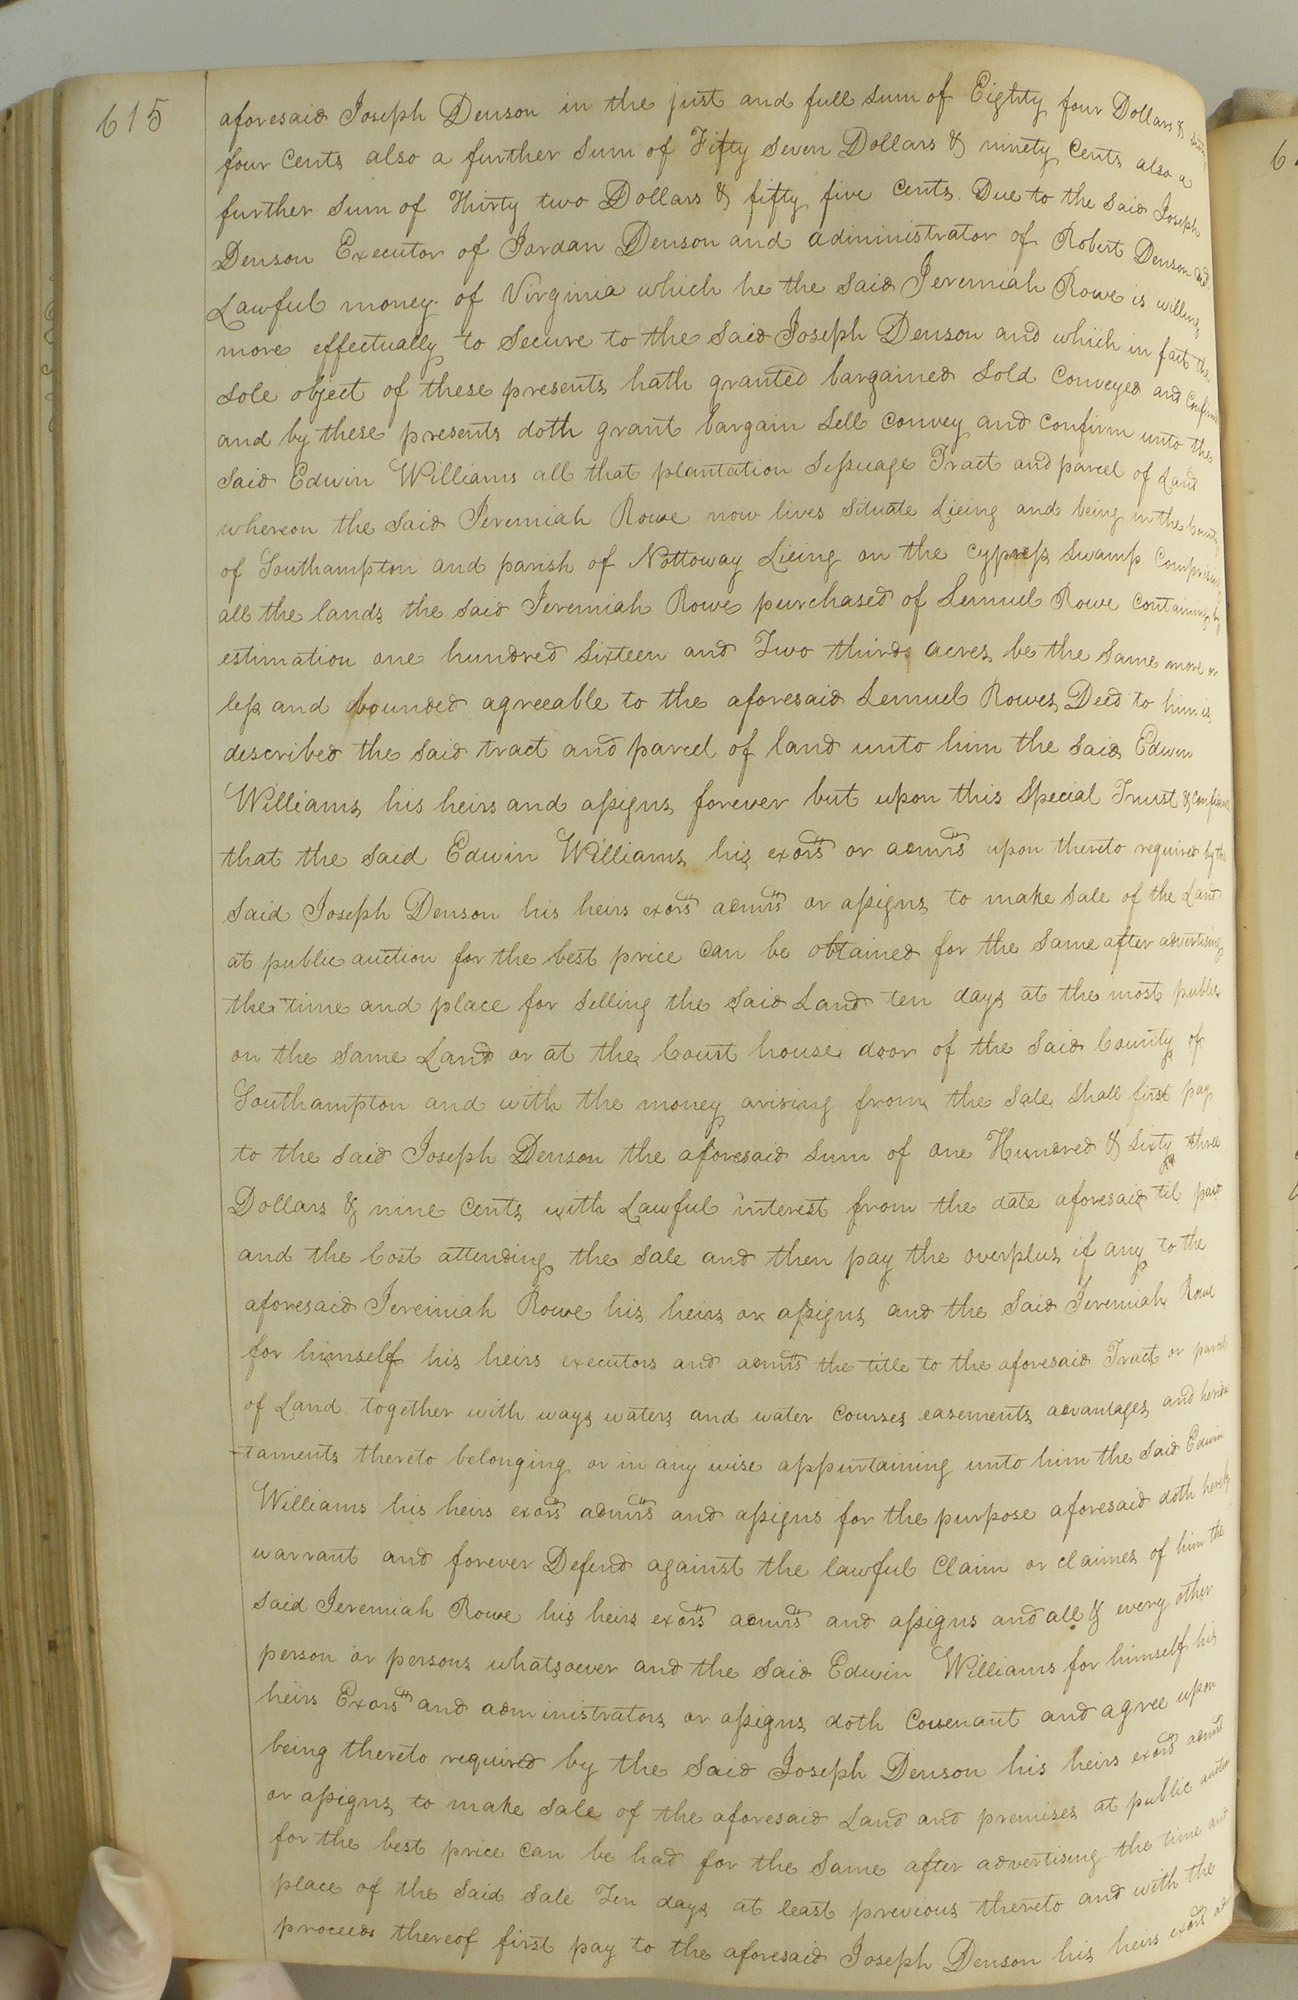 615
aforesaid Joseph Denson in the just and full sum of Eighty four Dollars & sixty
four Cents also a further Sum of Fifty Seven Dollars & ninety Cents also a
further Sum of Thirty two Dollars & fifty five Cents Due to the Said Joseph
Denson Executor of Jordan Denson and administrator of Robert Denson decd
Lawful money of Virginia which he the Said Jeremiah Rowe is willing
more effectually to Secure to the Said Joseph Denson and which in fact the
Sole object of these presents hath granted bargained Sold Conveyed and Confirmed
and by these presents doth grant bargain Sell Convey and Confirm unto the
Said Edwin Williams all that plantation Tract and parcel of Land
whereon the Said Jeremiah Rowe now lives Situate Lieing and being in the County
of Southampton and parish of Nottoway Lieing on the Cypress Swamp Comprising
all the lands the Said Jeremiah Rowe purchased of Lemuel Rowe Containing by
estimation one hundred Sixteen and Two thirds acres be the Same more or
less and bounded agreeable to the aforesaid Lemuel Rowes Deed to him is
described the Said tract and parcel of land unto him the Said Edwin
Williams his heirs and assigns forever but upon this Special Trust & confidence
that the Said Edwin Williams his exors or admrs upon thereto required by the
Said Joseph Denson his heirs exors admrs or assigns to make Sale of the Land
at public auction for the best price Can be obtained for the Same after advertising
the time and place for Selling the Said Land ten days at the most public
on the Same Land or at the Court house door of the Said County of
Southampton and with the money arising from the Sale Shall first pay
to the Said Joseph Denson the aforesaid Sum of one Hundred & Sixty three
Dollars & nine Cents with Lawful interest from the date aforesaid til paid
and the Cost attending the Sale and then pay the overplus if any to the
aforesaid Jeremiah Rowe his heirs or assigns and the Said Jeremiah Rowe
for himself his heirs executors and admrs the title to the aforesaid Tract or parcel
of Land together with ways waters and water Courses easements advantages and heridi
-taments thereto belonging or in any wise appurtaining unto him the Said Edwin
Williams his heirs exors admrs and assigns for the purpose aforesaid doth hereby
warrant and forever Defend against the lawful Claim or claimes of him the
Said Jeremiah Rowe his heirs exors admrs and assigns and all & every other
person or persons whatsoever and the Said Edwin Williams for himself his
heirs Exors and administrators or assigns doth Covenant and agree upon
being thereto required by the Said Joseph Denson his heirs exors admrs
or assigns to make Sale of the aforesaid Land and premises at public auction
for the best price Can be had for the Same after advertising the time and
place of the Said Sale Ten days at least previous thereto and with the
proceeds thereof first pay to the aforesaid Joseph Denson his heirs exors